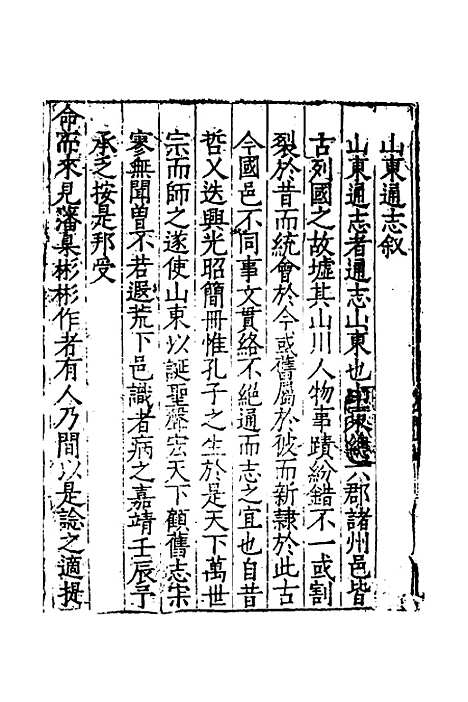 山東通志敘
山東通志者通志山東也山東總六郡諸州邑皆
古列國之故墟其山川人物事蹟紛錯不一或割
裂於昔而統會於今或舊屬於彼而新隷於此古
今國邑不同事文貫絡不絕通而志之宜也自昔
哲乂迭興光昭簡冊惟孔子之生於是天下萬世
宗而師之遂使山東以誕聖聲宏天下顧舊志宋
寥無聞曽不若遐荒下邑識者病之嘉靖壬辰予
承乏按是邦受
命而來見藩臬彬彬作者有人乃間以是諗之適提